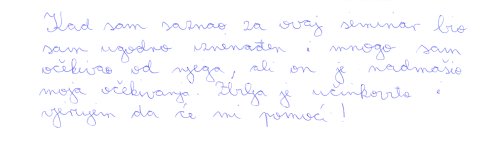 Kad sam saznao za ovaj seminar bio
sam ugodno iznenađen i mnogo sam
očekivao od njega, ali on je nadmašio
moja očekivanja. Zbilja je učinkovito i
vjerujem da će mi pomoći!